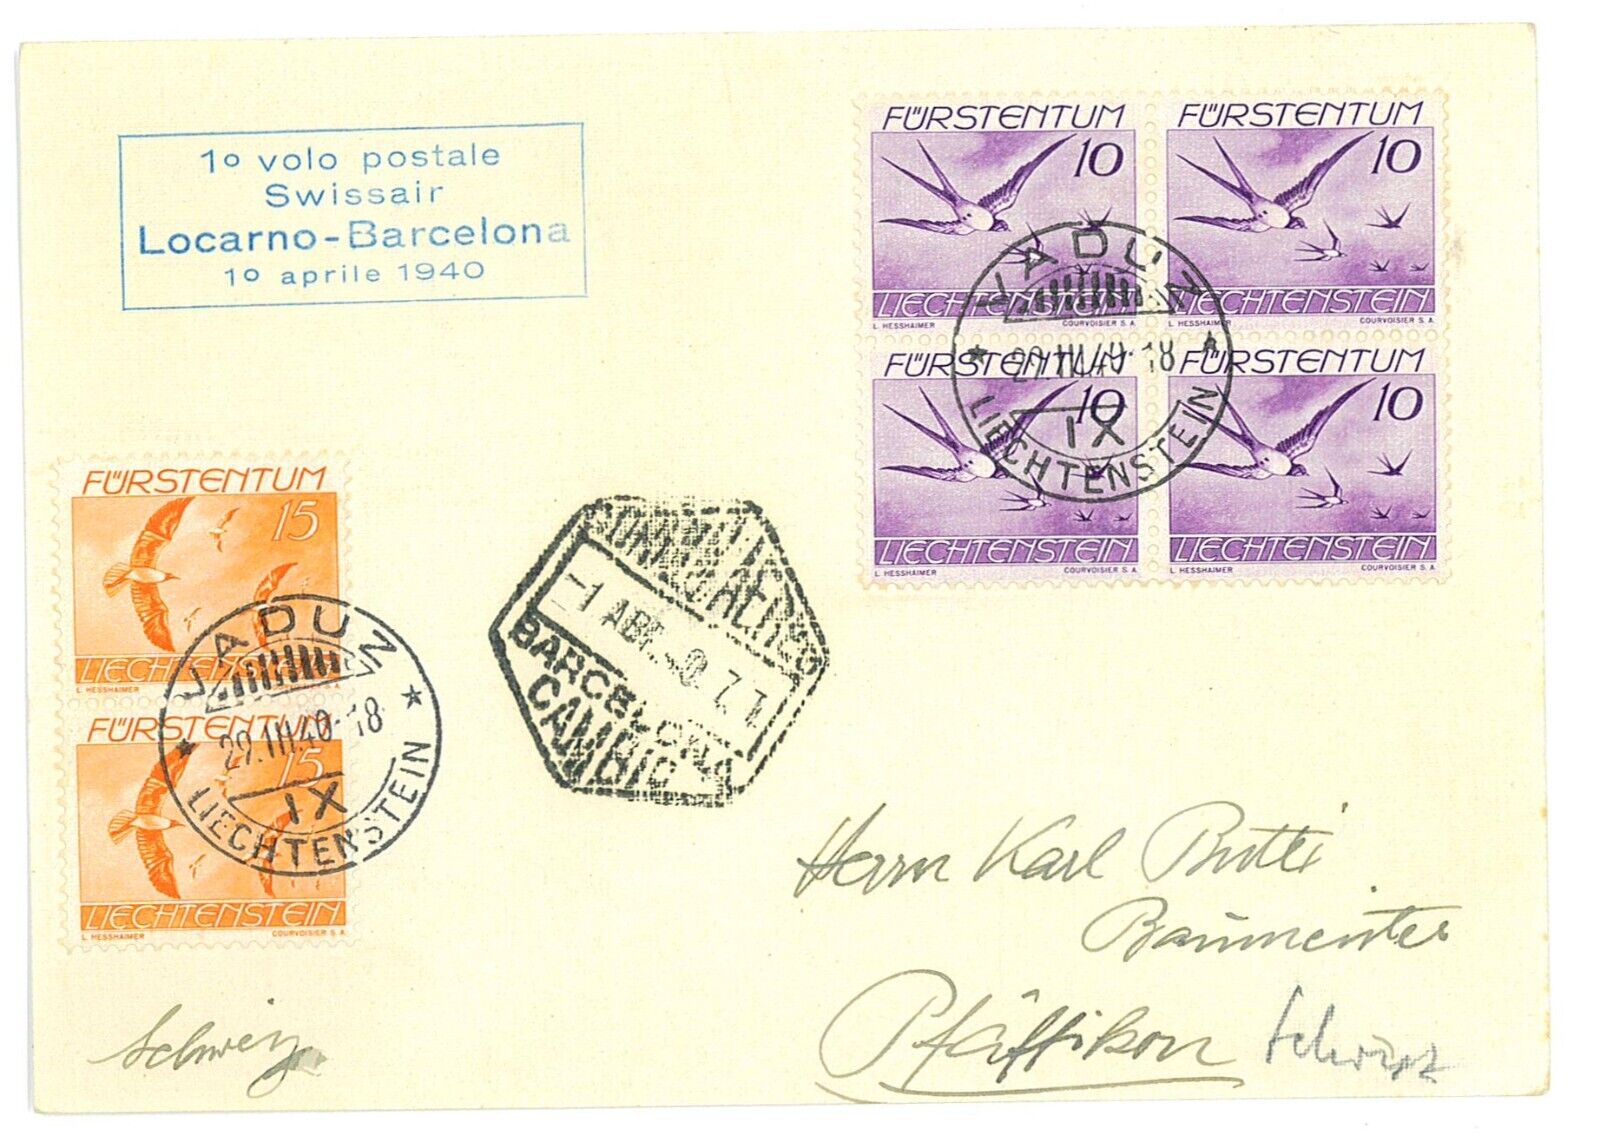 1º volo postale
Swissair
Locarno-Barcelona
1º aprile 1940
FÜRSTENTUM
10
LIECHTENSTEIN
L. HESSHAIMER COURVOISIER S. A.
FÜRSTENTUM
10
LIECHTENSTEIN
L. HESSHAIMER COURVOISIER S. A.
FÜRSTENTUM
10
LIECHTENSTEIN
L. HESSHAIMER COURVOISIER S. A.
FÜRSTENTUM
10
LIECHTENSTEIN
L. HESSHAIMER COURVOISIER S. A.
VADUZ
29.III.40-18
IX
LIECHTENSTEIN
FÜRSTENTUM
15
LIECHTENSTEIN
L. HESSHAIMER S. A.
FÜRSTENTUM
15
LIECHTENSTEIN
L. HESSHAIMER COURVOISIER S. A.
VADUZ
29.III.40-18
IX
LIECHTENSTEIN
CORREO AEREO
-1 ABR. 40. 7 T
BARCELONA
CAMBIO
Herrn Karl
Baumeister
Pfäffikon
Schweiz